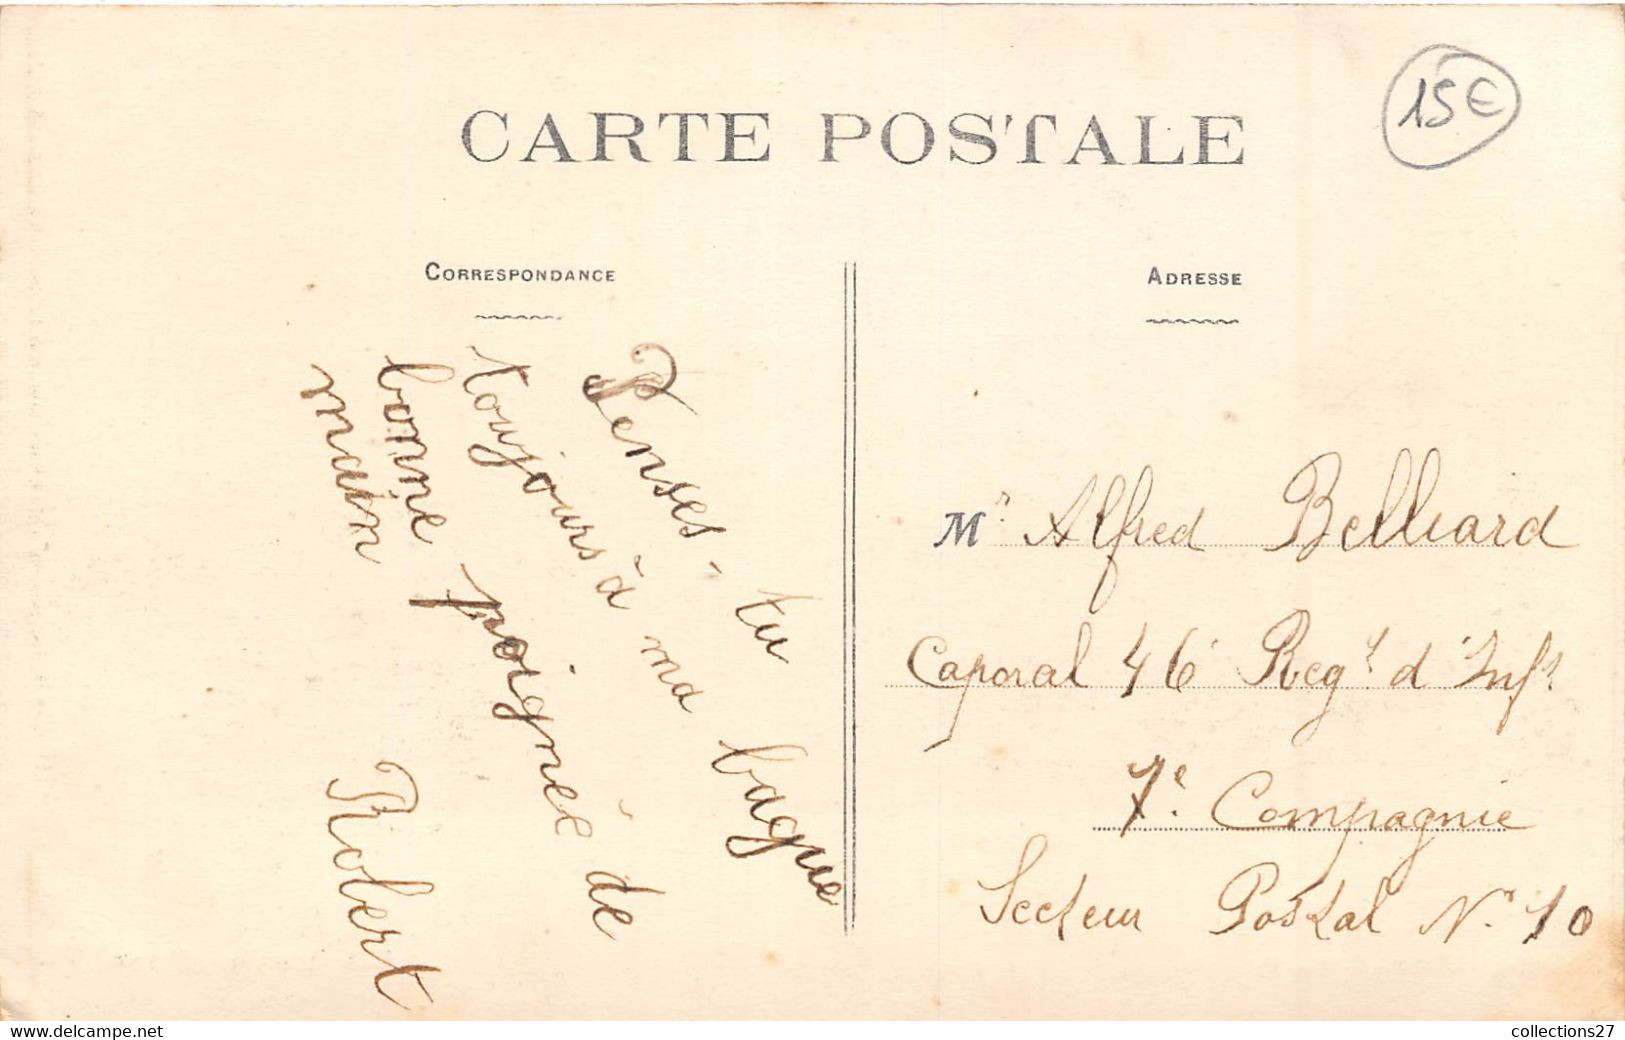 CARTE POSTALE
15€
CORRESPONDANCE
Penses-tu
toujours à ma bague
bonne poignée de
main
Robert
ADRESSE
M. Alfred Belliard
Caporal 46e Regt d'Inft
7e Compagnie
Secteur Postal No 10
www.delcampe.net
collections27